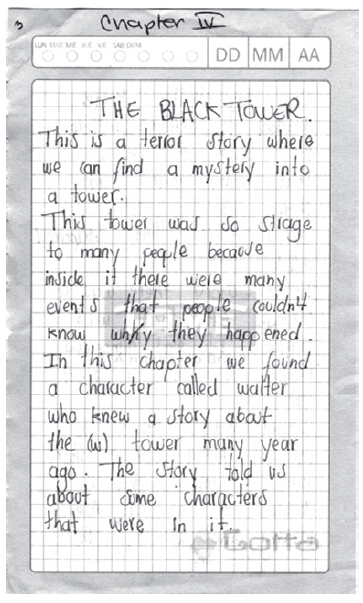 3
Chapter IV
LUN MAR MIE JUE VIE SAB DOM
DD MM AA
THE BLACK TOWER.
This is a terror story where
we can find a mystery into
a tower.
This tower was so strage
to many people because
inside it there were many
events that people couldn't
know why they happened.
In this chapter we found
a character called walter
who knew a story about
the (w) tower many year
ago. The story told us
about some characters
that were in it.